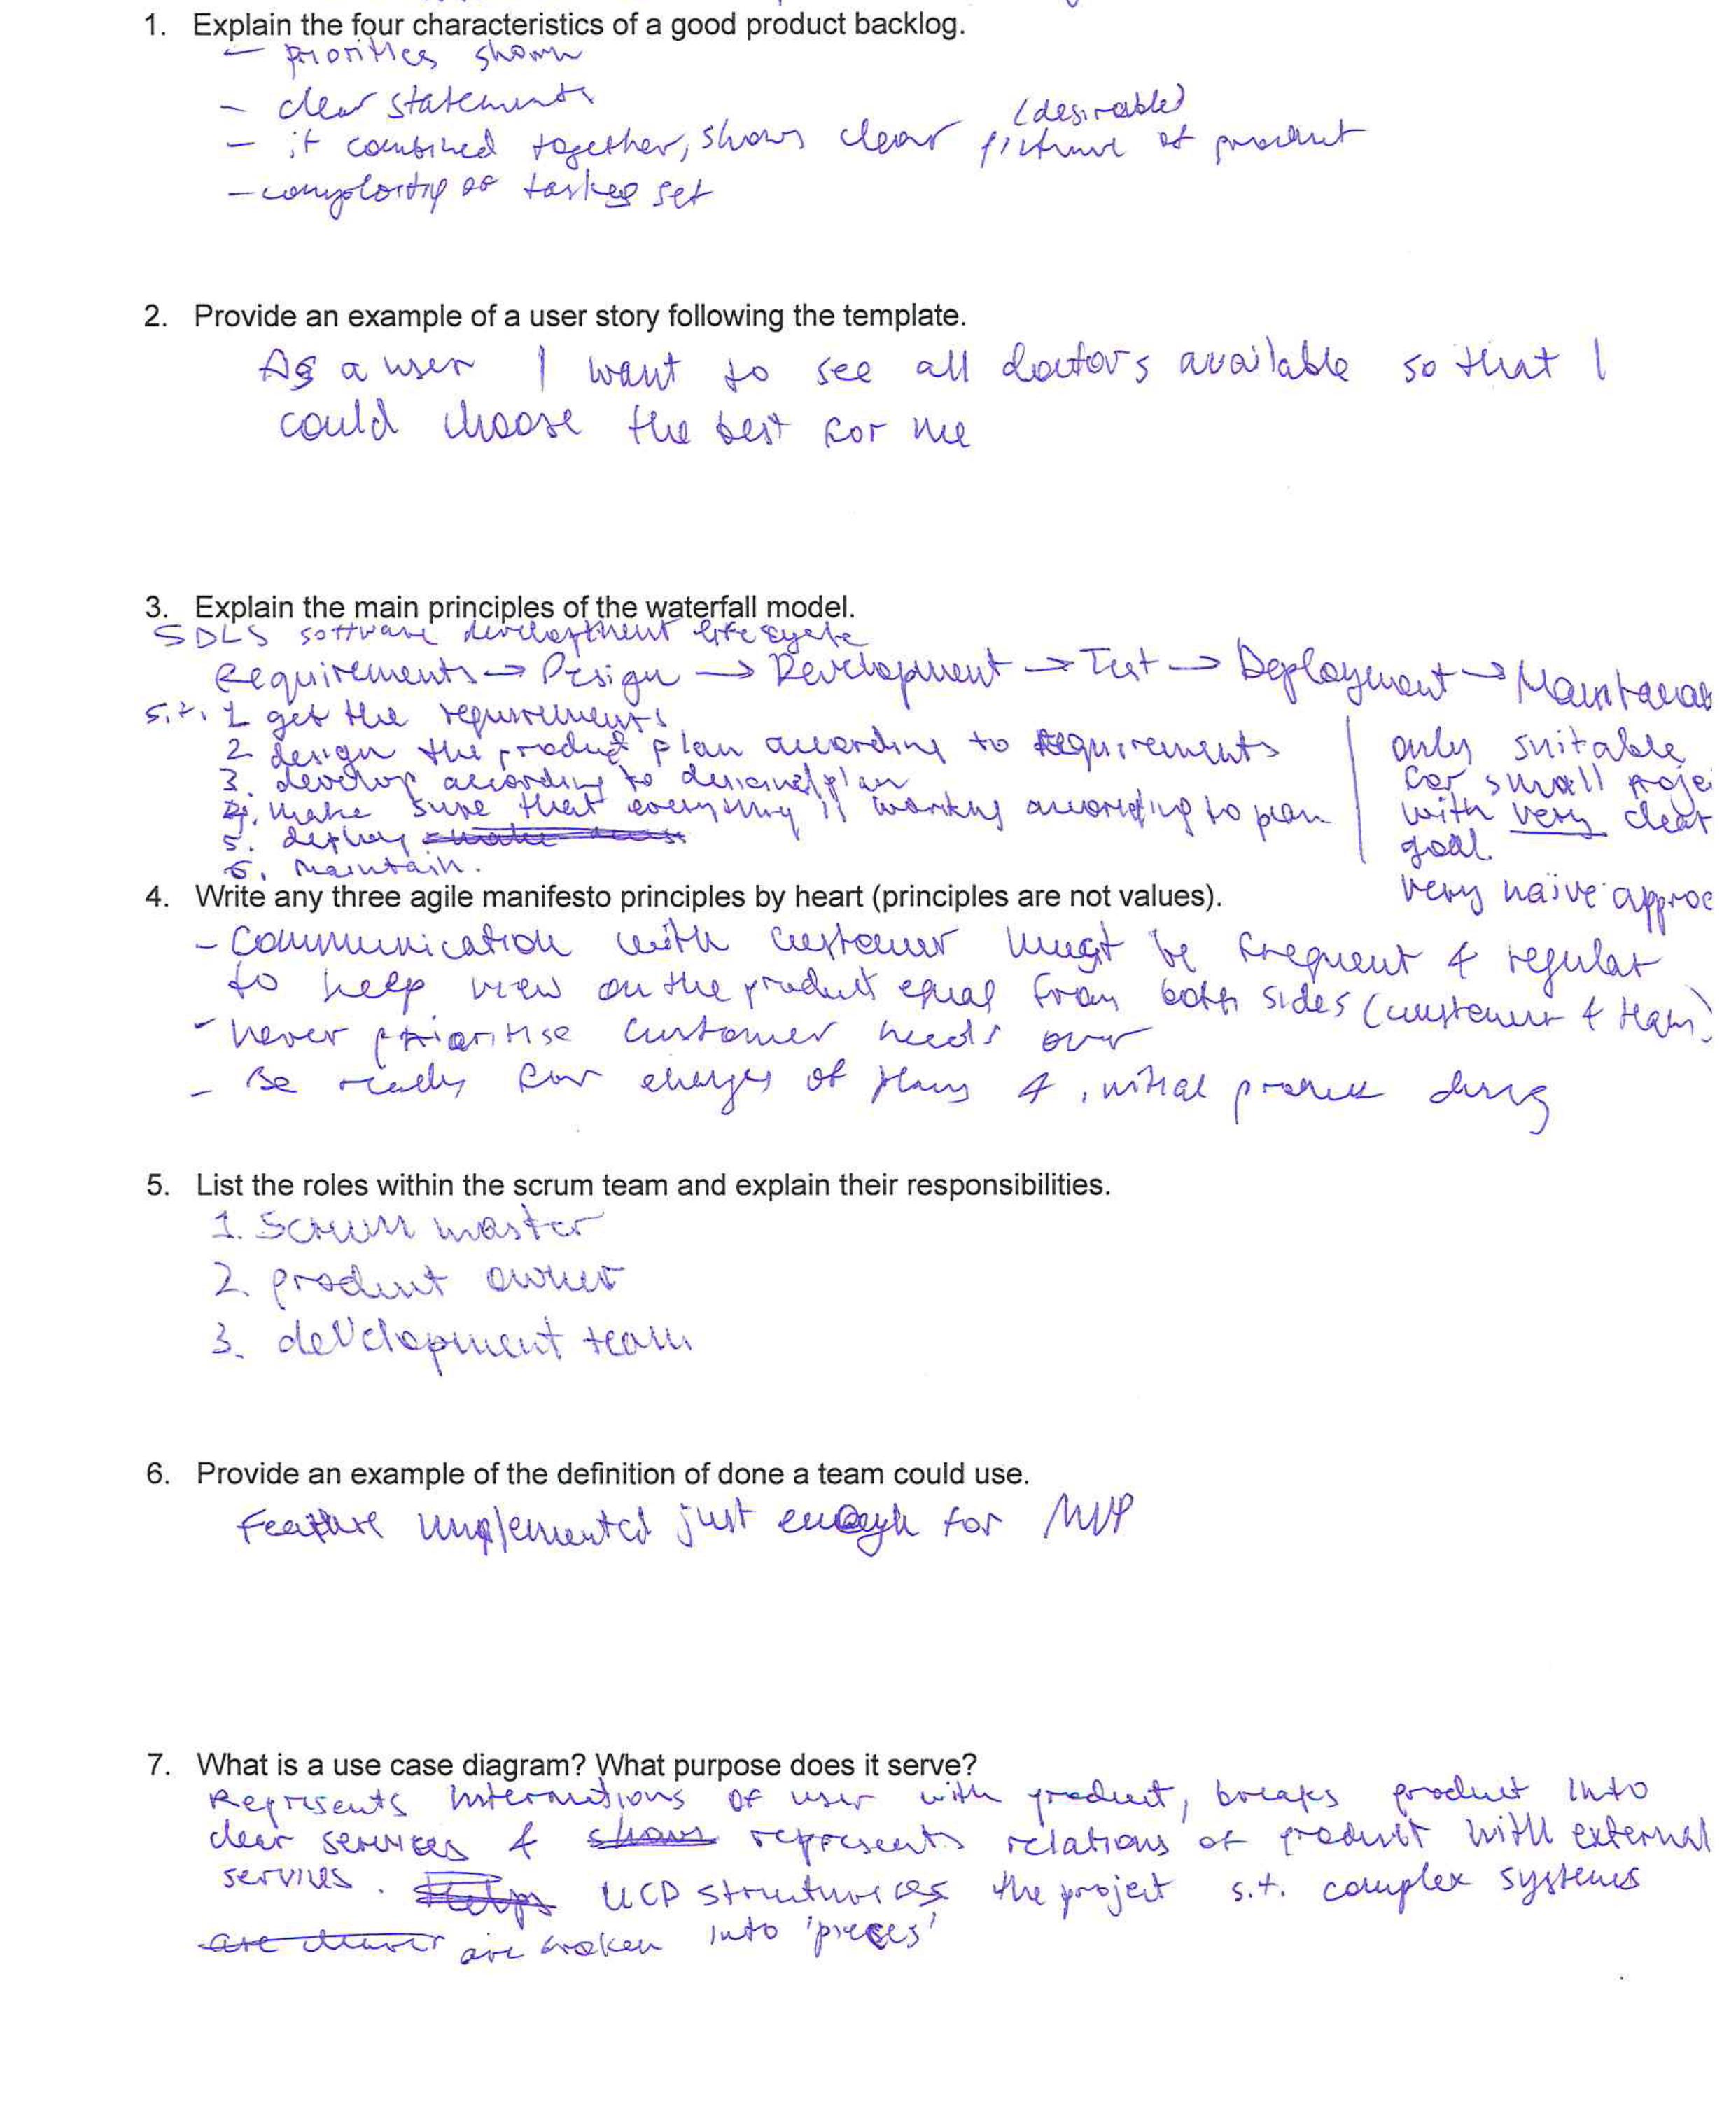 1. Explain the four characteristics of a good product backlog.
- priorities shown
- clear statements
(desirable)
- if combined together, shows clear picture of product
- complexity of tasks set
2. Provide an example of a user story following the template.
As a user I want to see all doctors available so that I
could choose the best for me
3. Explain the main principles of the waterfall model.
SDLS software development life cycle
Requirements → Design → Development → Test → Deployment → Maintenan
s.t. 1 get the requirements
2 design the product plan according to requirements
3. develop according to plan
4. make sure that everything is working according to plan
5. deploy
6. maintain.
only suitable
for small proje
with very clear
goal.
very naive approc
4. Write any three agile manifesto principles by heart (principles are not values).
- Communication with customer must be frequent & regular
to help view on the product equal from both sides (customer & team)
- never prioritise customer needs over
- Be ready for changes of plans & initial product
5. List the roles within the scrum team and explain their responsibilities.
1. Scrum master
2. product owner
3. development team
6. Provide an example of the definition of done a team could use.
Feature implemented just enough for MVP
7. What is a use case diagram? What purpose does it serve?
Represents interactions of user with product, breaks product into
clear services & shows represents relations of product with external
services. Helps UCD structurices the project s.t. complex systems
are are broken into 'pieces'